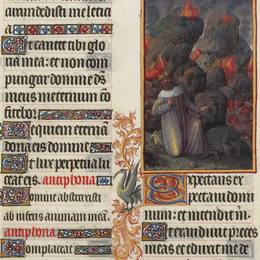 cumdedisti michi letici
a
Ut cantet tibi glo
ria mea: et non com
pungar domine ds
meus in eternum co
fitebor:
Requiem eternā
dona eis domine
Et lux perpetua lu
ceat eis. antiphona
Domine abstraxisti
ab inferis animam meā.
antiphona
Complaceat
Expectans ex
pectavi domi
num: et intendit m̄.
Et exaudivit preces
meas et eduxit me de